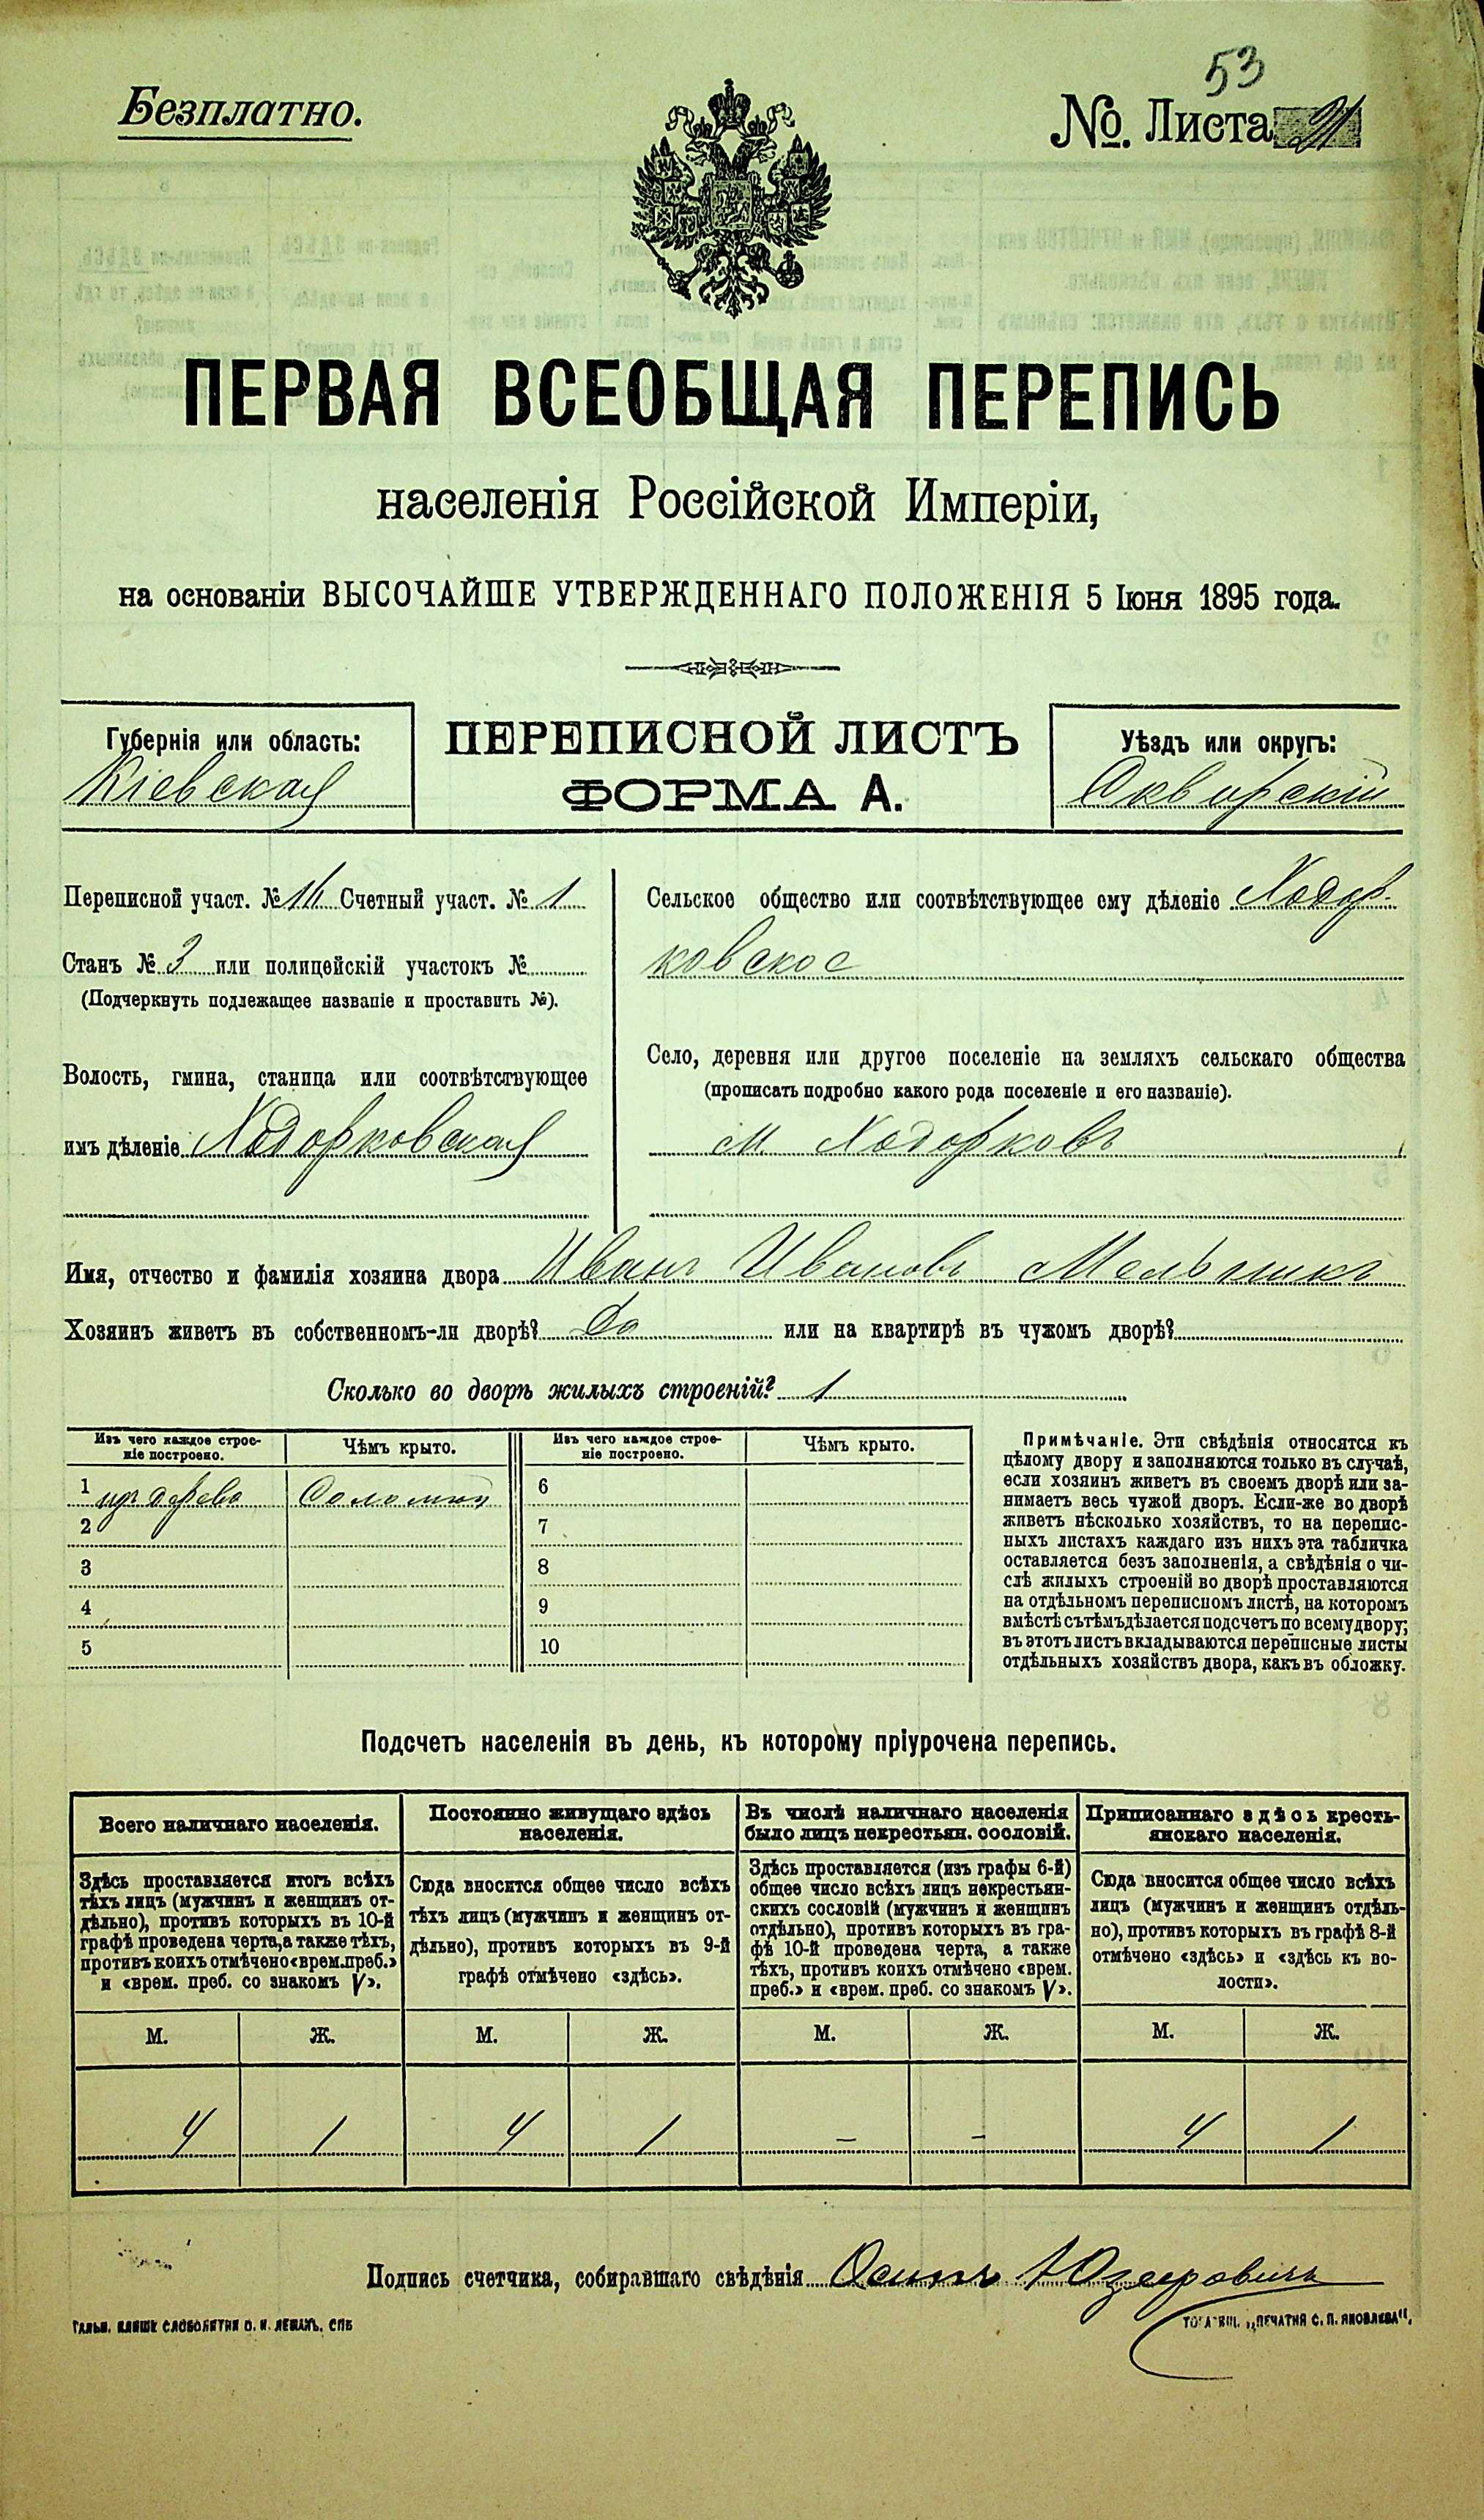 53
Безплатно.
№. Листа 21
ПЕРВАЯ ВСЕОБЩАЯ ПЕРЕПИСЬ
населенія Россійской Имперіи,
на основаніи ВЫСОЧАЙШЕ УТВЕРЖДЕННАГО ПОЛОЖЕНІЯ 5 Іюня 1895 года.
Губернія или область:
Кіевская
ПЕРЕПИСНОЙ ЛИСТЪ
ФОРМА А.
Уѣздъ или округъ:
Сквирскій
Переписной участ. № Счетный участ. № 1
Станъ № 3 или полицейскій участокъ №
(Подчеркнуть подлежащее названіе и проставить №).
Волость, гмина, станица или соотвѣтствующее
имъ дѣленіе Ходорковская
Сельское общество или соотвѣтствующее ему дѣленіе Ходор-
ковское
Село, деревня или другое поселеніе на земляхъ сельскаго общества
(прописать подробно какого рода поселеніе и его названіе).
м Ходорковъ
Имя, отчество и фамилія хозяина двора Иванъ Ивановъ Мельникъ
Хозяинъ живетъ въ собственномъ-ли дворѣ? Да или на квартирѣ въ чужомъ дворѣ?
Сколько во дворѣ жилыхъ строеній? 1
Изъ чего каждое строе-
ніе построено.
Чѣмъ крыто.
Изъ чего каждое строе-
ніе построено.
Чѣмъ крыто.
1 изъ дерева Соломой 6
2 7
3 8
4 9
5 10
Примѣчаніе. Эти свѣдѣнія относятся къ
цѣлому двору и заполняются только въ случаѣ,
если хозяинъ живетъ въ своемъ дворѣ или за-
нимаетъ весь чужой дворъ. Если-же во дворѣ
живетъ нѣсколько хозяйствъ, то на перепис-
ныхъ листахъ каждаго изъ нихъ эта табличка
оставляется безъ заполненія, а свѣдѣнія о чи-
слѣ жилыхъ строеній во дворѣ проставляются
на отдѣльномъ переписномъ листѣ, на которомъ
вмѣстѣ съ тѣмъ дѣлается подсчетъ по всему двору;
въ этотъ листъ вкладываются переписные листы
отдѣльныхъ хозяйствъ двора, какъ въ обложку.
Подсчетъ населенія въ день, къ которому пріурочена перепись.
Всего наличнаго населенія.
Здѣсь проставляется итогъ всѣхъ
тѣхъ лицъ (мужчинъ и женщинъ от-
дѣльно), противъ которыхъ въ 10-й
графѣ проведена черта, а также тѣхъ,
противъ коихъ отмѣчено «врем. преб.»
и «врем. преб. со знакомъ V».
Постоянно живущаго здѣсь
населенія.
Сюда вносится общее число всѣхъ
тѣхъ лицъ (мужчинъ и женщинъ от-
дѣльно), противъ которыхъ въ 9-й
графѣ отмѣчено «здѣсь».
Въ числѣ наличнаго населенія
было лицъ некрестьян. сословій.
Здѣсь проставляется (изъ графы 6-й)
общее число всѣхъ лицъ некрестьян-
скихъ сословій (мужчинъ и женщинъ
отдѣльно), противъ которыхъ въ гра-
фѣ 10-й проведена черта, а также
тѣхъ, противъ коихъ отмѣчено «врем.
преб.» и «врем. преб. со знакомъ V».
Приписаннаго здѣсь кресть-
янскаго населенія.
Сюда вносится общее число всѣхъ
лицъ (мужчинъ и женщинъ отдѣль-
но), противъ которыхъ въ графѣ 8-й
отмѣчено «здѣсь» и «здѣсь къ во-
лости».
М. Ж. М. Ж. М. Ж. М. Ж.
4 1 4 1 – – 4 1
Подпись счетчика, собиравшаго свѣдѣнія Осипъ